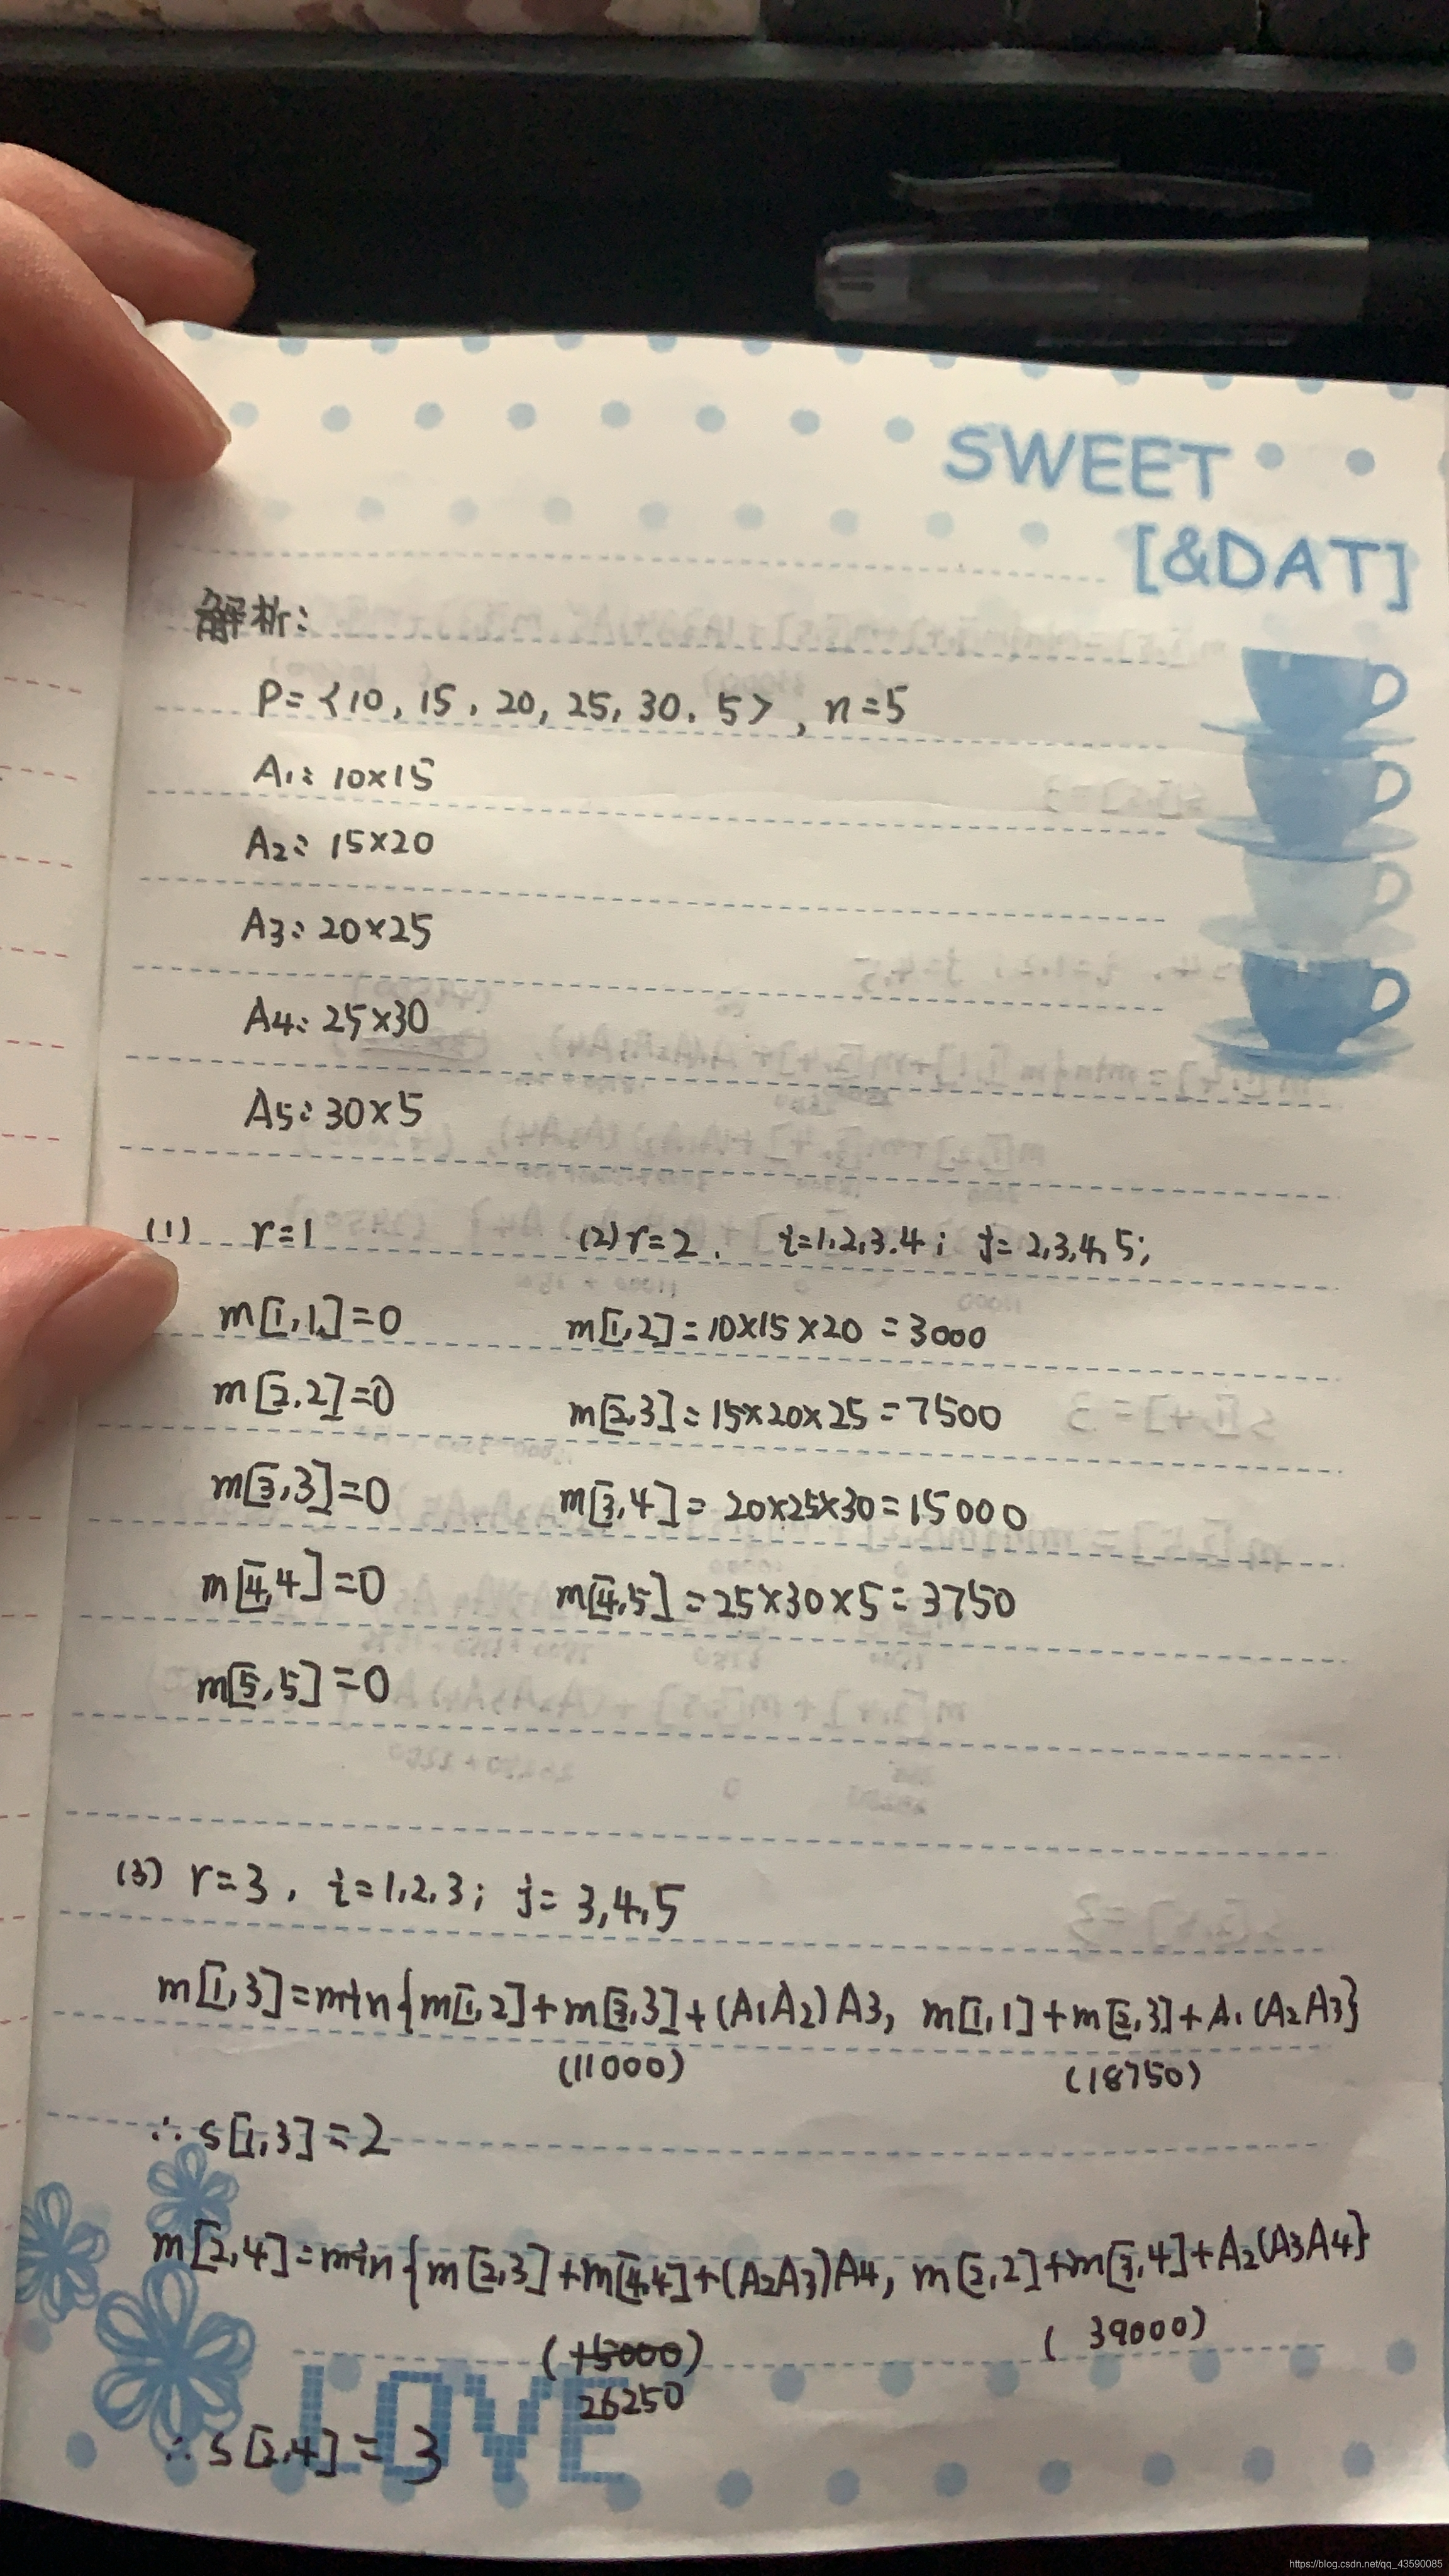 SWEET
[&DAT]
解析:
P=<10, 15, 20, 25, 30, 5>, n=5
A1: 10×15
A2: 15×20
A3: 20×25
A4: 25×30
A5: 30×5
(1) r=1
(2) r=2, i=1,2,3,4; j=2,3,4,5;
m[1,1]=0
m[1,2]=10×15×20=3000
m[2,2]=0
m[2,3]=15×20×25=7500
m[3,3]=0
m[3,4]=20×25×30=15000
m[4,4]=0
m[4,5]=25×30×5=3750
m[5,5]=0
(3) r=3, i=1,2,3; j=3,4,5
m[1,3]=min{m[1,2]+m[3,3]+(A1A2)A3, m[1,1]+m[2,3]+A1(A2A3}
(11000) (18750)
∴ s[1,3]=2
m[2,4]=min{m[2,3]+m[4,4]+(A2A3)A4, m[2,2]+m[3,4]+A2(A3A4}
(15000) (39000)
26250
∴ s[2,4]=3
LOVE
https://blog.csdn.net/qq_43590085